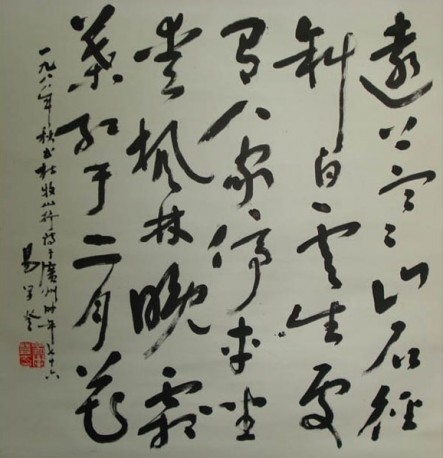 遠上寒山石徑
斜白雲生處
有人家停車坐
愛枫林晚霜
葉紅于二月花
一九八八年秋书杜牧山行诗于廣州时年七十六